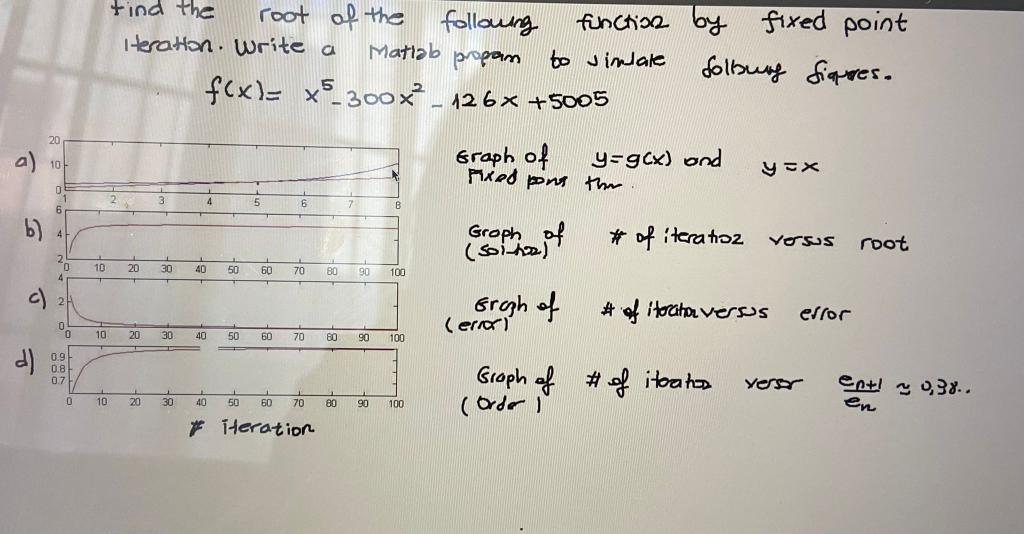 Find the root of the following function by fixed point
Iteration. Write a Matlab program to simulate following figures.
f(x)= x⁵-300x²-126x+5005
a)
20
10
0
1 2 3 4 5 6 7 8
Graph of y=g(x) and y=x
Fixed
b)
6
4
2
0 10 20 30 40 50 60 70 80 90 100
Graph of # of iteration versus root
c)
4
2
0
0 10 20 30 40 50 60 70 80 90 100
Graph of # of iteration versus error
(error)
d)
0.9
0.8
0.7
0 10 20 30 40 50 60 70 80 90 100
Graph of # of versus en+1/en ≈ 0,38..
(order)
# iteration